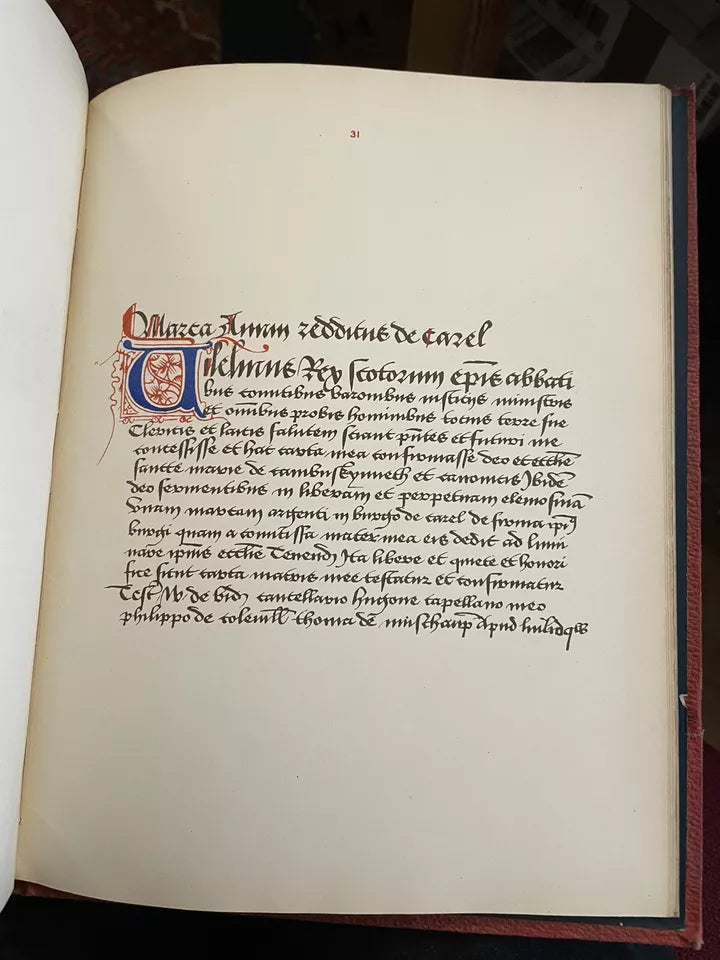 31
Marca Annui redditus de Carel
Uilelmus Rex scotorum ep̄is abbati
bus comitibus baronibus iusticijs ministris
et omibus probis hominibus totius terre sue
Clericis et laicis salutem sciant p̄ntes et futuri me
concessisse et hac carta mea confirmasse deo et ecch̄e
sancte marie de cambuskynneth et canonicis Ibidē
deo seruientibus in liberam et perpetuam elemosinā
Vnam marcam argenti in burgo de carel de firma ip̄i9
burgi quam a comitissa mater mea eis dedit ad lumi
nare ip̄ius ecch̄e Tenend Ita libere et quiete et honori
fice sicut carta matris mee testatur et confirmatur
Test W de bid cancellario hugone capellano meo
philippo de coleuill thoma dē muschanp Apud